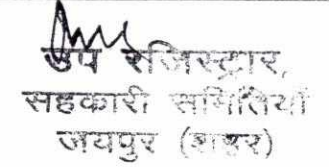 उप रजिस्ट्रार,
सहकारी समितियाँ
जयपुर (शहर)